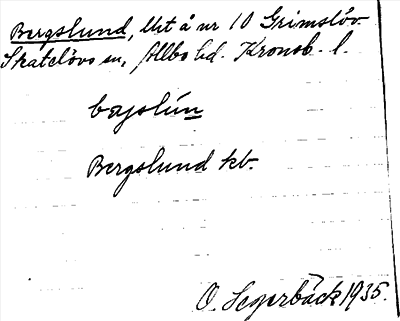 Bergslund, lht å nr 10 Grimslöv
Skatelövs sn, Allbo hd. Kronob. l.
bærjslún
Bergslund kb.
O. Segerbäck 1935.